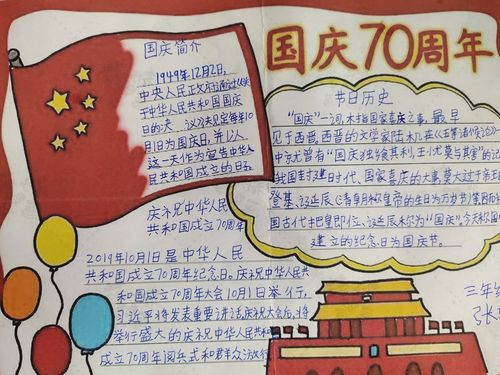 国庆70周年
国庆简介
1949年12月2日,
中央人民政府通过《关
于中华人民共和国国庆
日的决议》,决定每年10
月1日为国庆日,并以
这一天作为宣告中华人
民共和国成立的日子。
庆祝中华人民
共和国成立70周年
2019年10月1日是中华人民
共和国成立70周年纪念日。庆祝中华人民共
和国成立70周年大会10月1日举行,
习近平将发表重要讲话,庆祝大会后,将
举行盛大的庆祝中华人民共和国
成立70周年阅兵式和群众游行
节日历史
“国庆”一词,本指国家喜庆之事,最早
见于西晋。西晋的文学家陆机在《五等诸侯论》
中就曾有“国庆独飨其利,主忧莫与其害”的记
我国封建时代、国家喜庆的大事,莫大过于帝王的
登基、诞辰
国古代把皇帝即位、诞辰称为“国庆”。今天称国
建立的纪念日为国庆节。
三年级
张